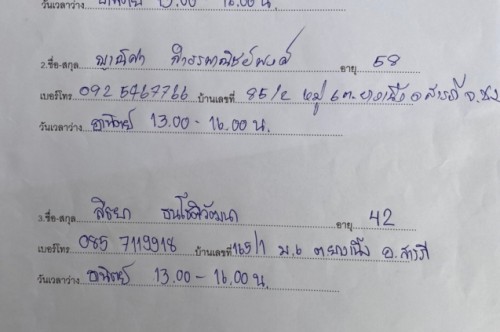 วันเวลาว่าง อาทิตย์ 13.00 - 16.00 น.
2.ชื่อ-สกุล ญาณิศา อายุ 58
เบอร์โทร 092 5467766 บ้านเลขที่ 85/2 หมู่ 6 ต.ยางเนิ้ง อ.สารภี จ.ชม
วันเวลาว่าง อาทิตย์ 13.00 - 16.00 น.
3.ชื่อ-สกุล สิรยา ธนโชติวัฒนา อายุ 42
เบอร์โทร 085 7119918 บ้านเลขที่ 165/1 ม.6 ต.ยางเนิ้ง อ.สารภี
วันเวลาว่าง อาทิตย์ 13.00 - 16.00 น.